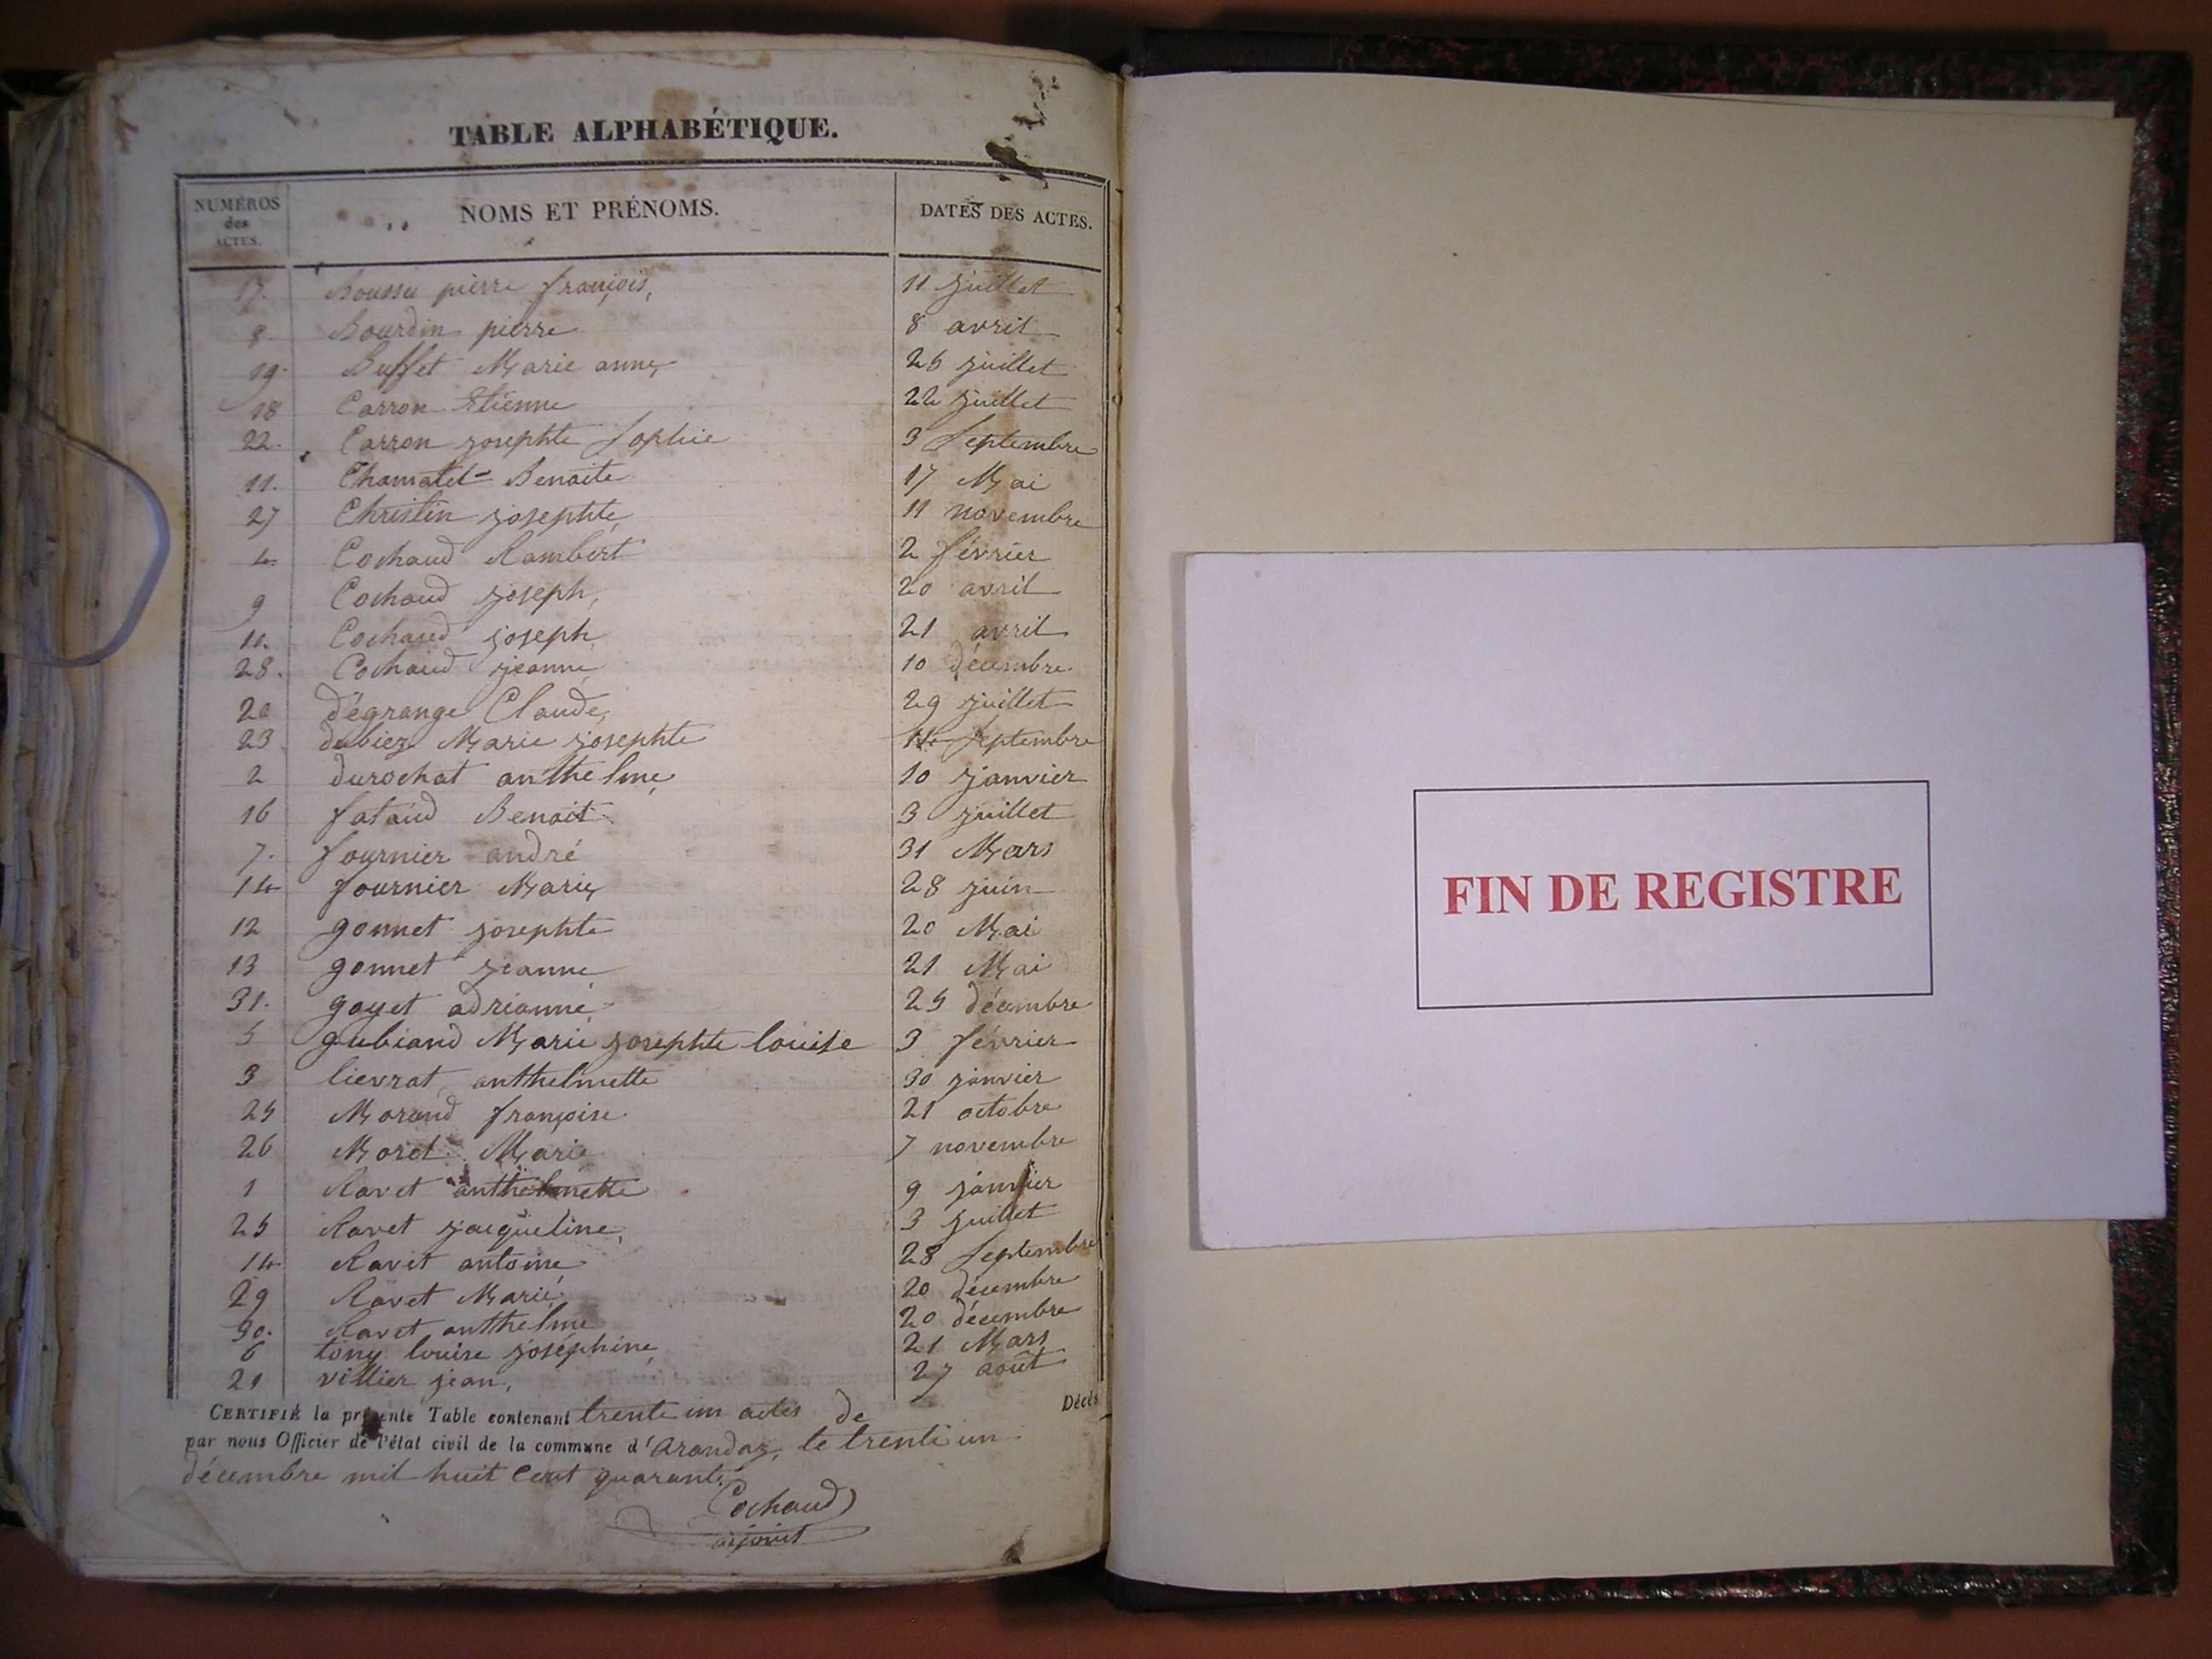 TABLE ALPHABÉTIQUE.
NUMÉROS des ACTES. NOMS ET PRÉNOMS. DATES DES ACTES.
17. Boussu pierre françois, 11 juillet
8 Bourdin pierre 8 avril
19. Buffet Marie anne, 25 juillet
18 Carron Etienne 22 juillet
22. Carron josephte Sophie 3 Septembre
11. Chamatel Benoite 17 Mai
27 Christin josephte 11 novembre
4. Cochaud Rambert 2 février
9 Cochaud joseph, 20 avril
10. Cochaud joseph 21 avril
28. Cochaud jeanne 10 décembre
20 dégrange Claude, 29 juillet
23 dubiez Marie josephte Septembre
2 durochat anthelme 10 janvier
16 fataud Benoit 3 juillet
7. fournier andré 31 Mars
14 fournier Marie 28 juin
12 gonnet josephte 20 Mai
13 gonnet jeanne 21 Mai
31. goyet adrianne 25 décembre
5 gubiand Marie josephte louise 3 février
3 lievrat anthelmette 30 janvier
25 Morand françoise 21 octobre
26 Morel Marie 7 novembre
1 Ravet anthelmette 9 janvier
25 Ravet jacqueline, 3 juillet
14 Ravet antoine 28 Septembre
29 Ravet Marie 20 décembre
30. Ravet anthelme 20 décembre
6 tony louise joséphine 21 Mars
21 villier jean, 27 août
CERTIFIÉ la présente Table contenant trente un actes de Décès
par nous Officier de l'état civil de la commune d'arandaz, le trente un
décembre mil huit cent quarante
Cochaud
adjoint
FIN DE REGISTRE